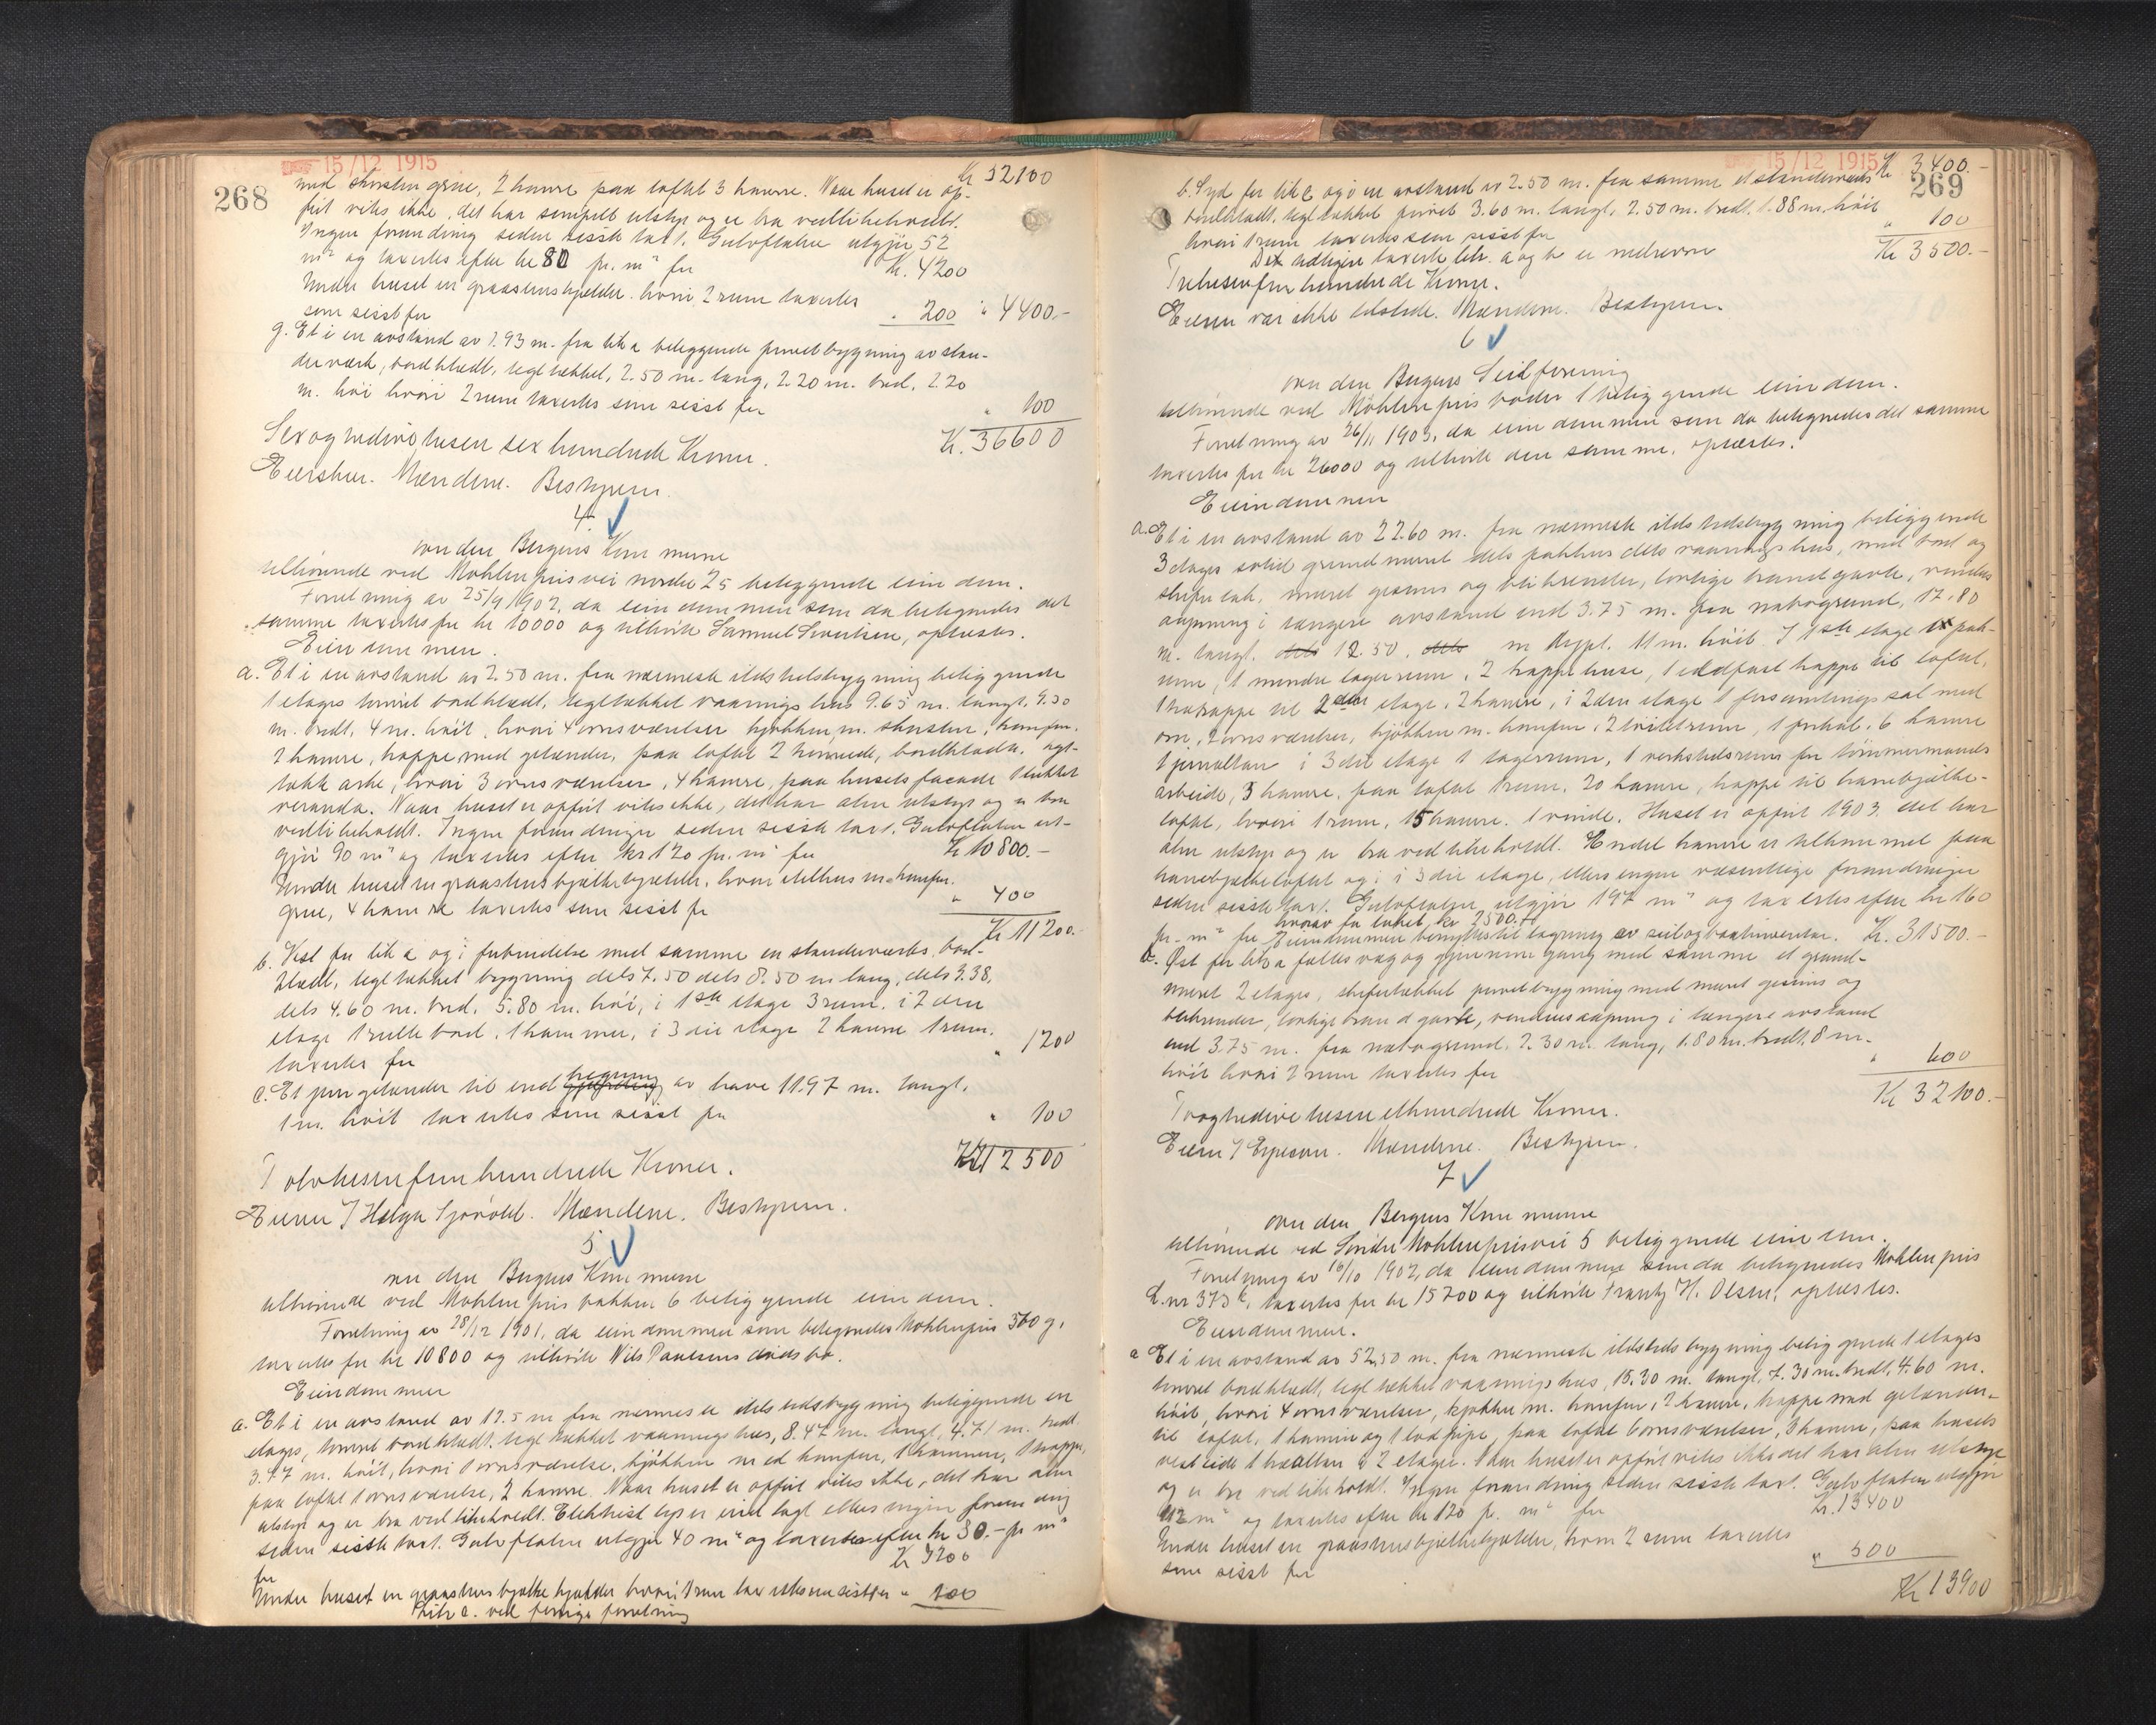 15/12 1915
268
Kr 32100
med skorsten grue, 2 kamre paa loftet 3 kamre. Naar huset er op-
ført vites ikke, det har simpelt utstyr og er bra vedlikeholdt.
Ingen forandring siden sisste taxt. Gulvflaten utgjør 52
m² og taxertes efter kr 80 pr. m² for Kr. 4200
Under huset en graastenskjælder hvori 2 rum taxertes
som sisst for " 200 " 4400.-
g. Et i en avstand av 1.93 m. fra litr a beliggende privetbygning av sten-
derværk, bordklædt, tegltækket, 2.50 m. lang, 2.20 m. bred, 2.20
m. høi hvori 2 rum taxertes som sisst for " 100
Kr. 36600
Sex og tredive tusen sex hundrede Kroner.
Eiersken. Mændene. Bestyreren.
4.
ovn den Bergens Kommune
tilhørende ved Møhlenprisvei nordre 25 beliggende eiendom.
Forretning av 25/9 1902, da eiendommen som da betegnedes det
samme taxertes for kr 10000 og tilhørte Samuel Sivertsen, oplæstes.
Eiendommen.
a. Et i en avstand av 2.50 m. fra nærmeste ildstedsbygning beliggende
1 etages tømret bordklædt, tegltækket vaaningshus 9.65 m. langt, 9.30
m. bredt, 4 m. høit, hvori 4 ovnsværelser kjøkken m. skorsten, komfur,
2 kamre, trappe med gelænder, paa loftet 2 tømrede, bordklædte, tegl-
tækk arke, hvori 3 ovnsværelser, 4 kamre, paa husets facade 1 lukket
veranda. Naar huset er opført vites ikke, det har alm utstyr og er bra
vedlikeholdt. Ingen forandringer siden sisste taxt. Gulvflaten ut-
gjør 90 m² og taxertes efter kr 120 pr. m² for Kr 10800.-
Under huset en graastens bjælkekjælder, hvori ildhus m. komfur,
grue, 4 kamre taxertes som sisst for " 400
Kr 11200.-
b. Vest for litr a og i forbindelse med samme en stenderværks, bord-
klædt, tegltækket bygning dels 7.50 dels 8.50 m lang, dels 3.38,
dels 4.60 m. bred, 5.80 m. høi, i 1ste etage 3 rum. i 2den
etage 1 rullebod, 1 kammer, i 3die etage 2 kamre 1 rum.
taxertes for " 1200
c. Et jerngelænder til indhegning av have 11.97 m. langt,
1 m. høit taxertes som sisst for " 100
Kr 12500
Tolv tusen fem hundrede Kroner.
Eieren / Helga Sjøvold. Mændene. Bestyreren.
5
ovn den Bergens Kommune
tilhørende ved Møhlenpris bakken 6 beliggende eiendom.
Forretning av 28/12 1901, da eiendommen som betegnedes Møhlenpris 360 g,
taxertes for kr 10800 og tilhørte Nils Paulsens dødsbo.
Eiendommen
a. Et i en avstand av 12.5 m fra nærmeste ildstedsbygning beliggende en
etages, tømret bordklædt, tegltækket vaaningshus, 8.47 m. langt, 4.71 m. bredt
3.77 m. høit, hvori 1 ovnsværelse, kjøkken med komfur, 1 kammer, 1 trappe,
paa loftet 1 ovnsværelse, 2 kamre. Naar huset er opført vites ikke, det har alm
utstyr og er bra vedlikeholdt. Elektrisk lys er indlagt ellers ingen forandring
siden sisste taxt. Gulvflaten utgjør 40 m² og taxertes efter kr 80.- pr m²
for Kr 3200
Under huset en graastens bjælke kjælder hvori 1 rum taxertes som sisst for " 200
Litr c. ved forrige forretning
15/12 1915
269
Kr 3400.-
b. Syd for litr c og i en avstand av 2.50 m. fra samme et stenderværks
bordklædt, tegltækket privet 3.60 m. langt, 2.50 m. bredt, 1.88 m. høit
hvori 1 rum taxertes som sisst for " 100
Kr 3500.-
De tidligere taxerte litr. a og b er nedrevne
Tretusen fem hundrede Kroner.
Eieren var ikke tilstede. Mændene. Bestyreren.
6
ovn den Bergens Seilforening
tilhørende ved Møhlenpris bøder 1 beliggende eiendom.
Forretning av 26/11 1903, da eiendommen som da betegnedes det samme
taxertes for kr 26000 og tilhørte den samme, oplæstes.
Eiendommen
a. Et i en avstand av 22.60 m. fra nærmeste ildstedsbygning beliggende
3 etages solid grundmuret dels pakhus dels vaaningshus, med bord og
skifertak, muret gesims og blikrender, lovlige brandgavle, vindus
aapning i længere avstand end 3.75 m. fra nabogrund, 17.80
m. langt, 12.50, m dypt. 11 m. høit. I 1ste etage pak-
rum, 1 mindre lagerrum, 2 trappehuse, 1 ildfast trappe til loftet,
1 trætrappe til 2den etage, 2 kamre, i 2den etage 1 forsamlings sal med
ovn, 2 ovnsværelser, kjøkken m. komfur, 2 toiletrum, 1 forhal. 6 kamre
1 jernaltan i 3die etage 1 lagerrum, 1 verkstedsrum for tømmermands
arbeide, 3 kamre, paa loftet 1 rum, 20 kamre, trappe til hanebjælke-
loftet, hvori 1 rum, 15 kamre. 1 vinde. Huset er opført 1903. det har
alm utstyr og er bra vedlikeholdt. Endel kamre er tilkommet paa
hanebjælkeloftet og i 3die etage, ellers ingen væsentlige forandringer
siden sisste taxt. Gulvflaten utgjør 197 m² og taxertes efter kr 160
pr. m² for hvorav for taket kr 2500.- Kr. 31500.-
Eiendommen benyttes til lagring av seil og baatinventar.
b. Øst for litr a fælles væg og gjennemgang med samme et grund-
muret 2 etages, skifertækket privetbygning med muret gesims og
blikrender, lovlige brandgavle, vindusaapning i længere avstand
end 3.75 m. fra nabogrund. 2.30 m. lang, 1.80 m. bredt, 8 m.
høit hvori 2 rum taxertes for " 600
Kr 32100.-
To og tredive tusen ethundrede Kroner.
Eieren / Espeson. Mændene. Bestyreren.
7
ovn den Bergens Kommune
tilhørende ved Søndre Møhlenprisvei 5 beliggende eiendom.
Forretning av 16/10 1902, da eiendommen som da betegnedes Møhlenpris
L.nr 373 k, taxertes for kr 15200 og tilhørte Frantz H. Olsen, oplæstes.
Eiendommen.
a Et i en avstand av 52.50 m. fra nærmeste ildsteds bygning beliggende 1 etages
tømret bordklædt, tegltækket vaaningshus, 15.30 m. langt, 7.30 m. bredt, 4.60 m.
høit, hvori 4 ovnsværelser, kjøkken m. komfur, 2 kamre, trappe med gelænder
til loftet, 1 kamin og 1 lodpipe, paa loftet 6 ovnsværelser, 3 kamre, paa husets
vestside 1 træaltan i 2 etager. Naar huset er opført vites ikke det har alm utstyr
og er bra vedlikeholdt. Ingen forandring siden sisste taxt. Gulvflaten utgjør
112 m² og taxertes efter kr 120 pr. m² for Kr. 13400
Under huset en graastensbjælkekjælder, hvori 2 rum taxertes
som sisst for " 500
Kr 13900